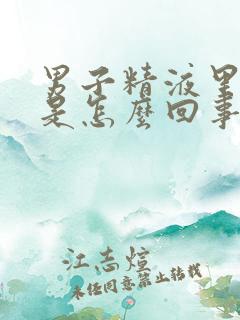 男子精液里
是怎麽回事
江志煊
未经同意禁止转载